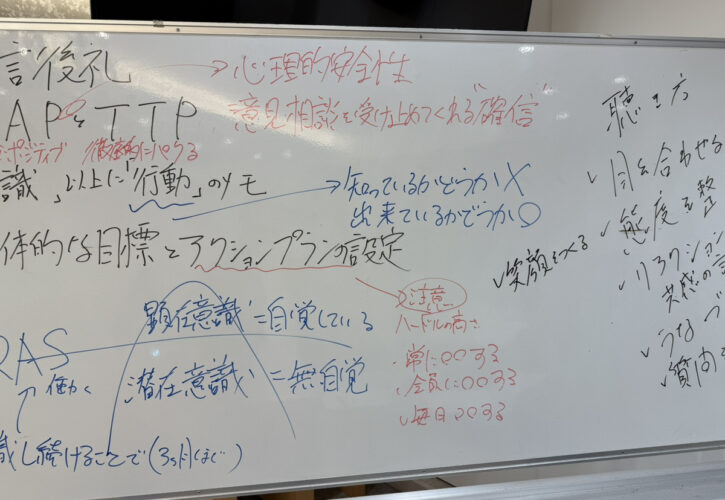 言後礼
→心理的安全性
APとTTP
意見相談を受け止めてくれる"確信"
ポジティブ 徹底的にパクる
識」以上に「行動」のメモ
→知っているかどうか×
出来ているかどうか○
体的な目標とアクションプランの設定
注意
ハードルの高さ
常に○○する
✓全員に○○する
✓毎日○○する
顕在意識=自覚している
RAS
潜在意識=無自覚
↑働く
識し続けることで(3ヶ月ほど)
聴き方
✓目を合わせる
✓態度を整
✓笑顔をつくる
✓リアクション
共感の言
✓うなづ
✓質問